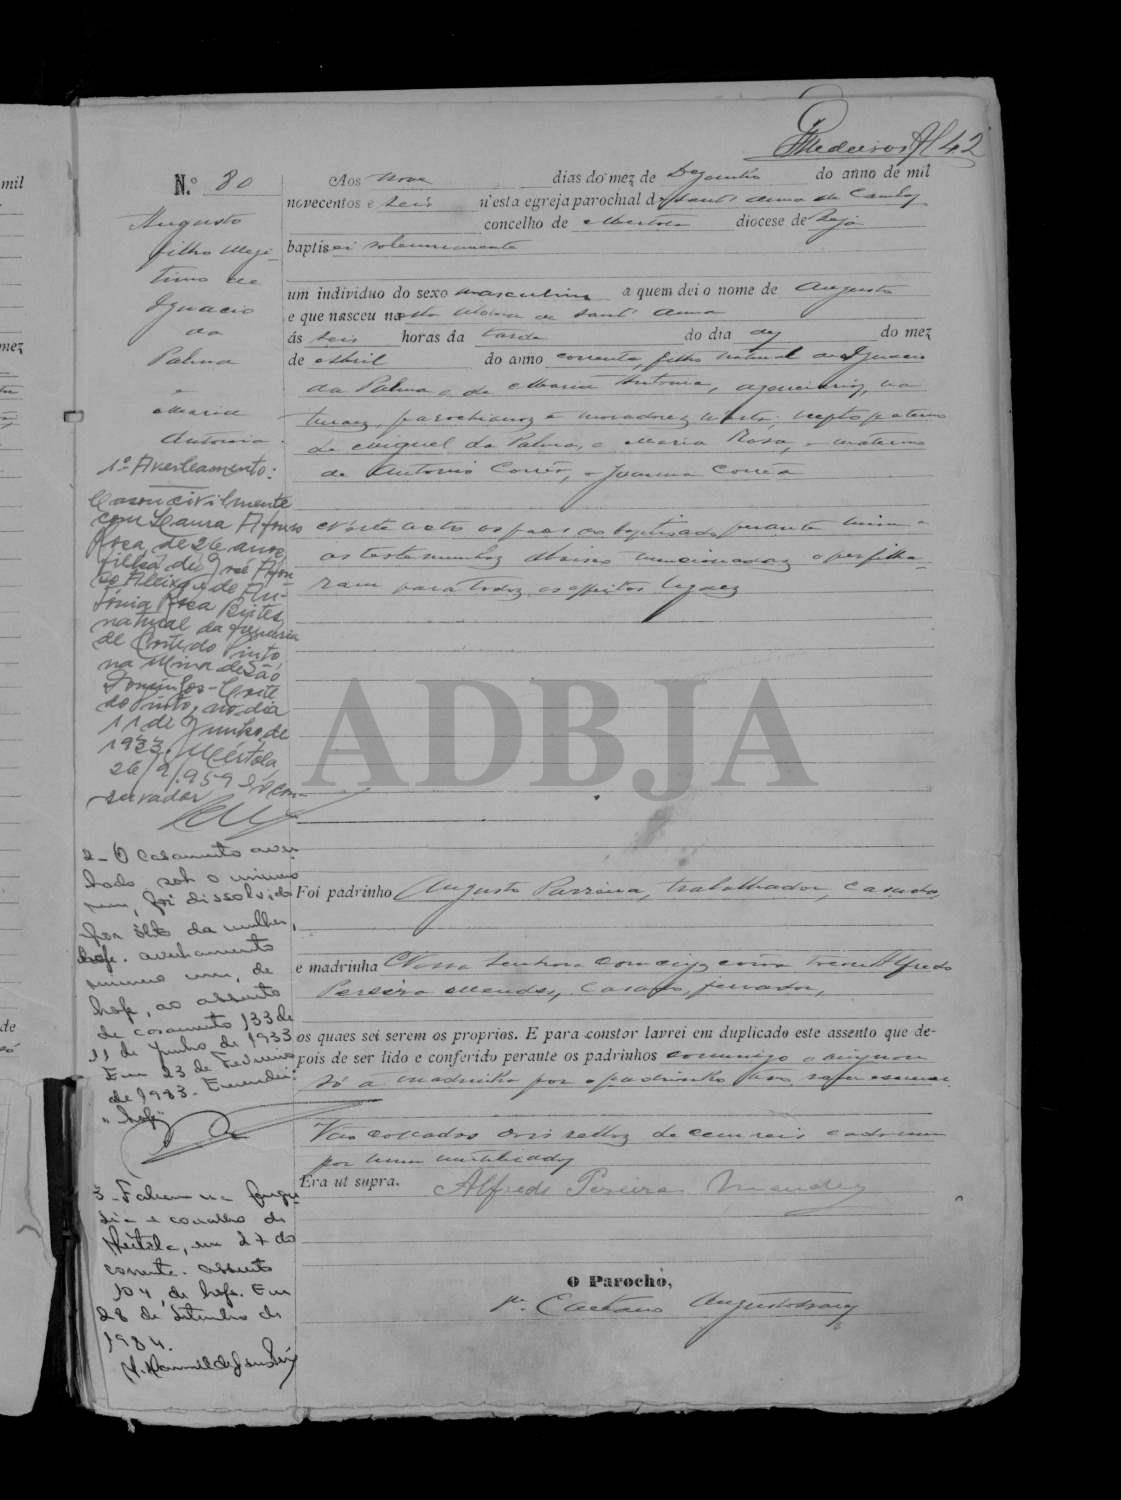 Medeiros 42
mil
mez
de
N.º 80
Augusto
filho illegi-
timo de
Ignacio
da
Palma
e
Maria
Antonia
Aos nove dias do mez de Dezembro do anno de mil
novecentos e seis n'esta egreja parochial de Sant'Anna de Cambas
concelho de Mertola diocese de Beja
baptisei solemnemente
um individuo do sexo masculino a quem dei o nome de Augusto
e que nasceu na Aldeia de Sant'Anna
ás seis horas da tarde do dia dez do mez
de Abril do anno corrente, filho natural de Ignacio
da Palma e de Maria Antonia, na-
turaes, parochianos e moradores n'esta; nepto paterno
de Miguel da Palma, e Maria Rosa, e materno
de Antonio Corrêa, e Joanna Corrêa
N'este acto os paes do baptisado perante mim e
as testemunhas abaixo mencionadas o perfilha-
ram para todos os effeitos legaes
1º Averbamento:
Casou civilmente
com Laura Afonso
Rosa, de 26 anos,
filha de José Afon-
so Aleixo e de An-
tónia Rosa Bentes,
natural da freguesia
de Corte do Pinto
na Mina de São
Domingos - Corte
do Pinto, no dia
11 de Junho de
1933. Mértola,
26/9/959 - O Con-
servador
ADBJA
2 - O casamento aver-
bado sob o número
um, foi dissolvido
por óbito da mulher,
hoje. averbamento
número um, de
hoje, ao assento
de casamento 133 de
11 de Junho de 1933
Em 23 de Fevereiro
de 1983. Emendei:
"hoje"
Foi padrinho Augusto Parreira, trabalhador, casado,
e madrinha Nossa Senhora com cuja corôa tocou Alfredo
Pereira Mendes, casado, ferrador,
os quaes sei serem os proprios. E para constar lavrei em duplicado este assento que de-
pois de ser lido e conferido perante os padrinhos commigo assignou
só a madrinha por o padrinho não saber escrever.
Vão collados dois sellos de cem reis cada um
por mim inutilisados
Era ut supra. Alfredo Pereira Mendes
3 - Faleceu na fregue-
sia e concelho de
Mértola, em 27 do
corrente. assento
104, de hoje. Em
28 de Setembro de
1984.
O Parocho,
Pe. Caetano Augusto